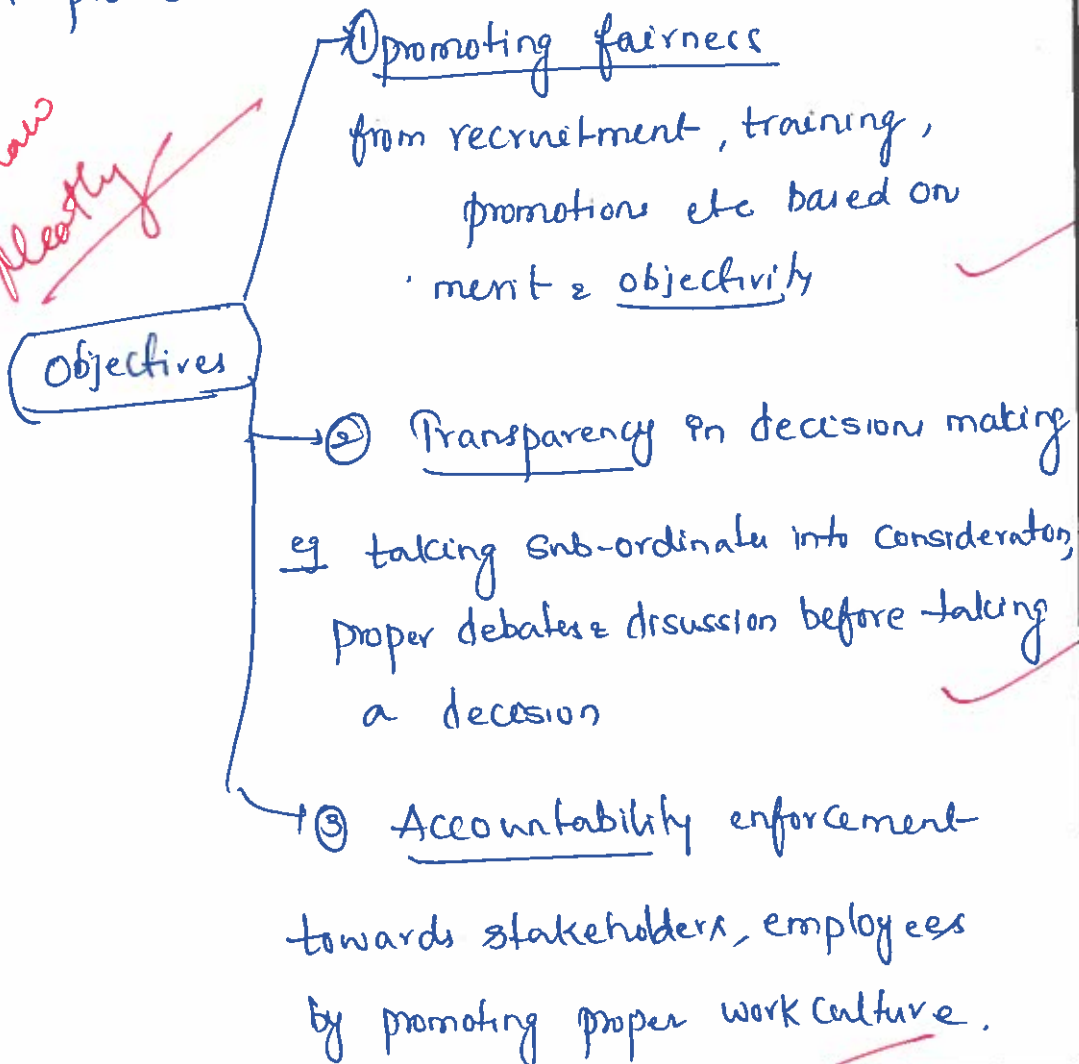 ① promoting fairness
from recruitment, training,
promotions etc based on
merit & objectivity
neatly
Objectives
② Transparency in decisions making
eg taking sub-ordinates into consideraton,
proper debates & disussion before taking
a decesion
③ Accountability enforcement
towards stakeholders, employees
by promoting proper work culture.